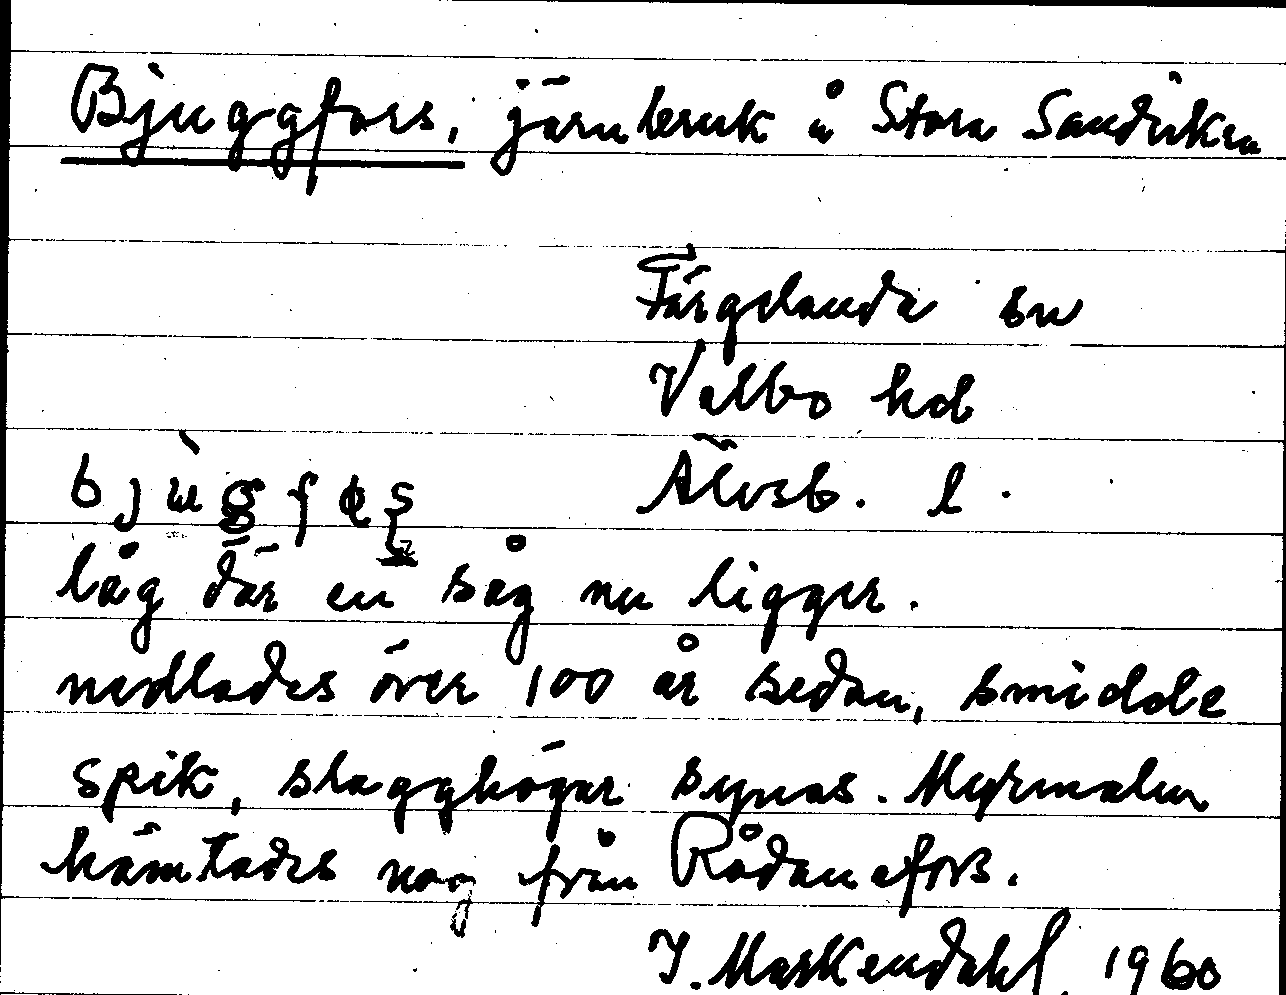 Bjuggfors, järnbruk å Stora Sandviken
Färgelanda sn
Valbo hd
Älvsb. l.
låg där en såg nu ligger.
nedlades över 100 år sedan, smidde
spik, slagghögar synas. Myrmalm
hämtades nog från Rådanefors.
I. Maskendahl 1960